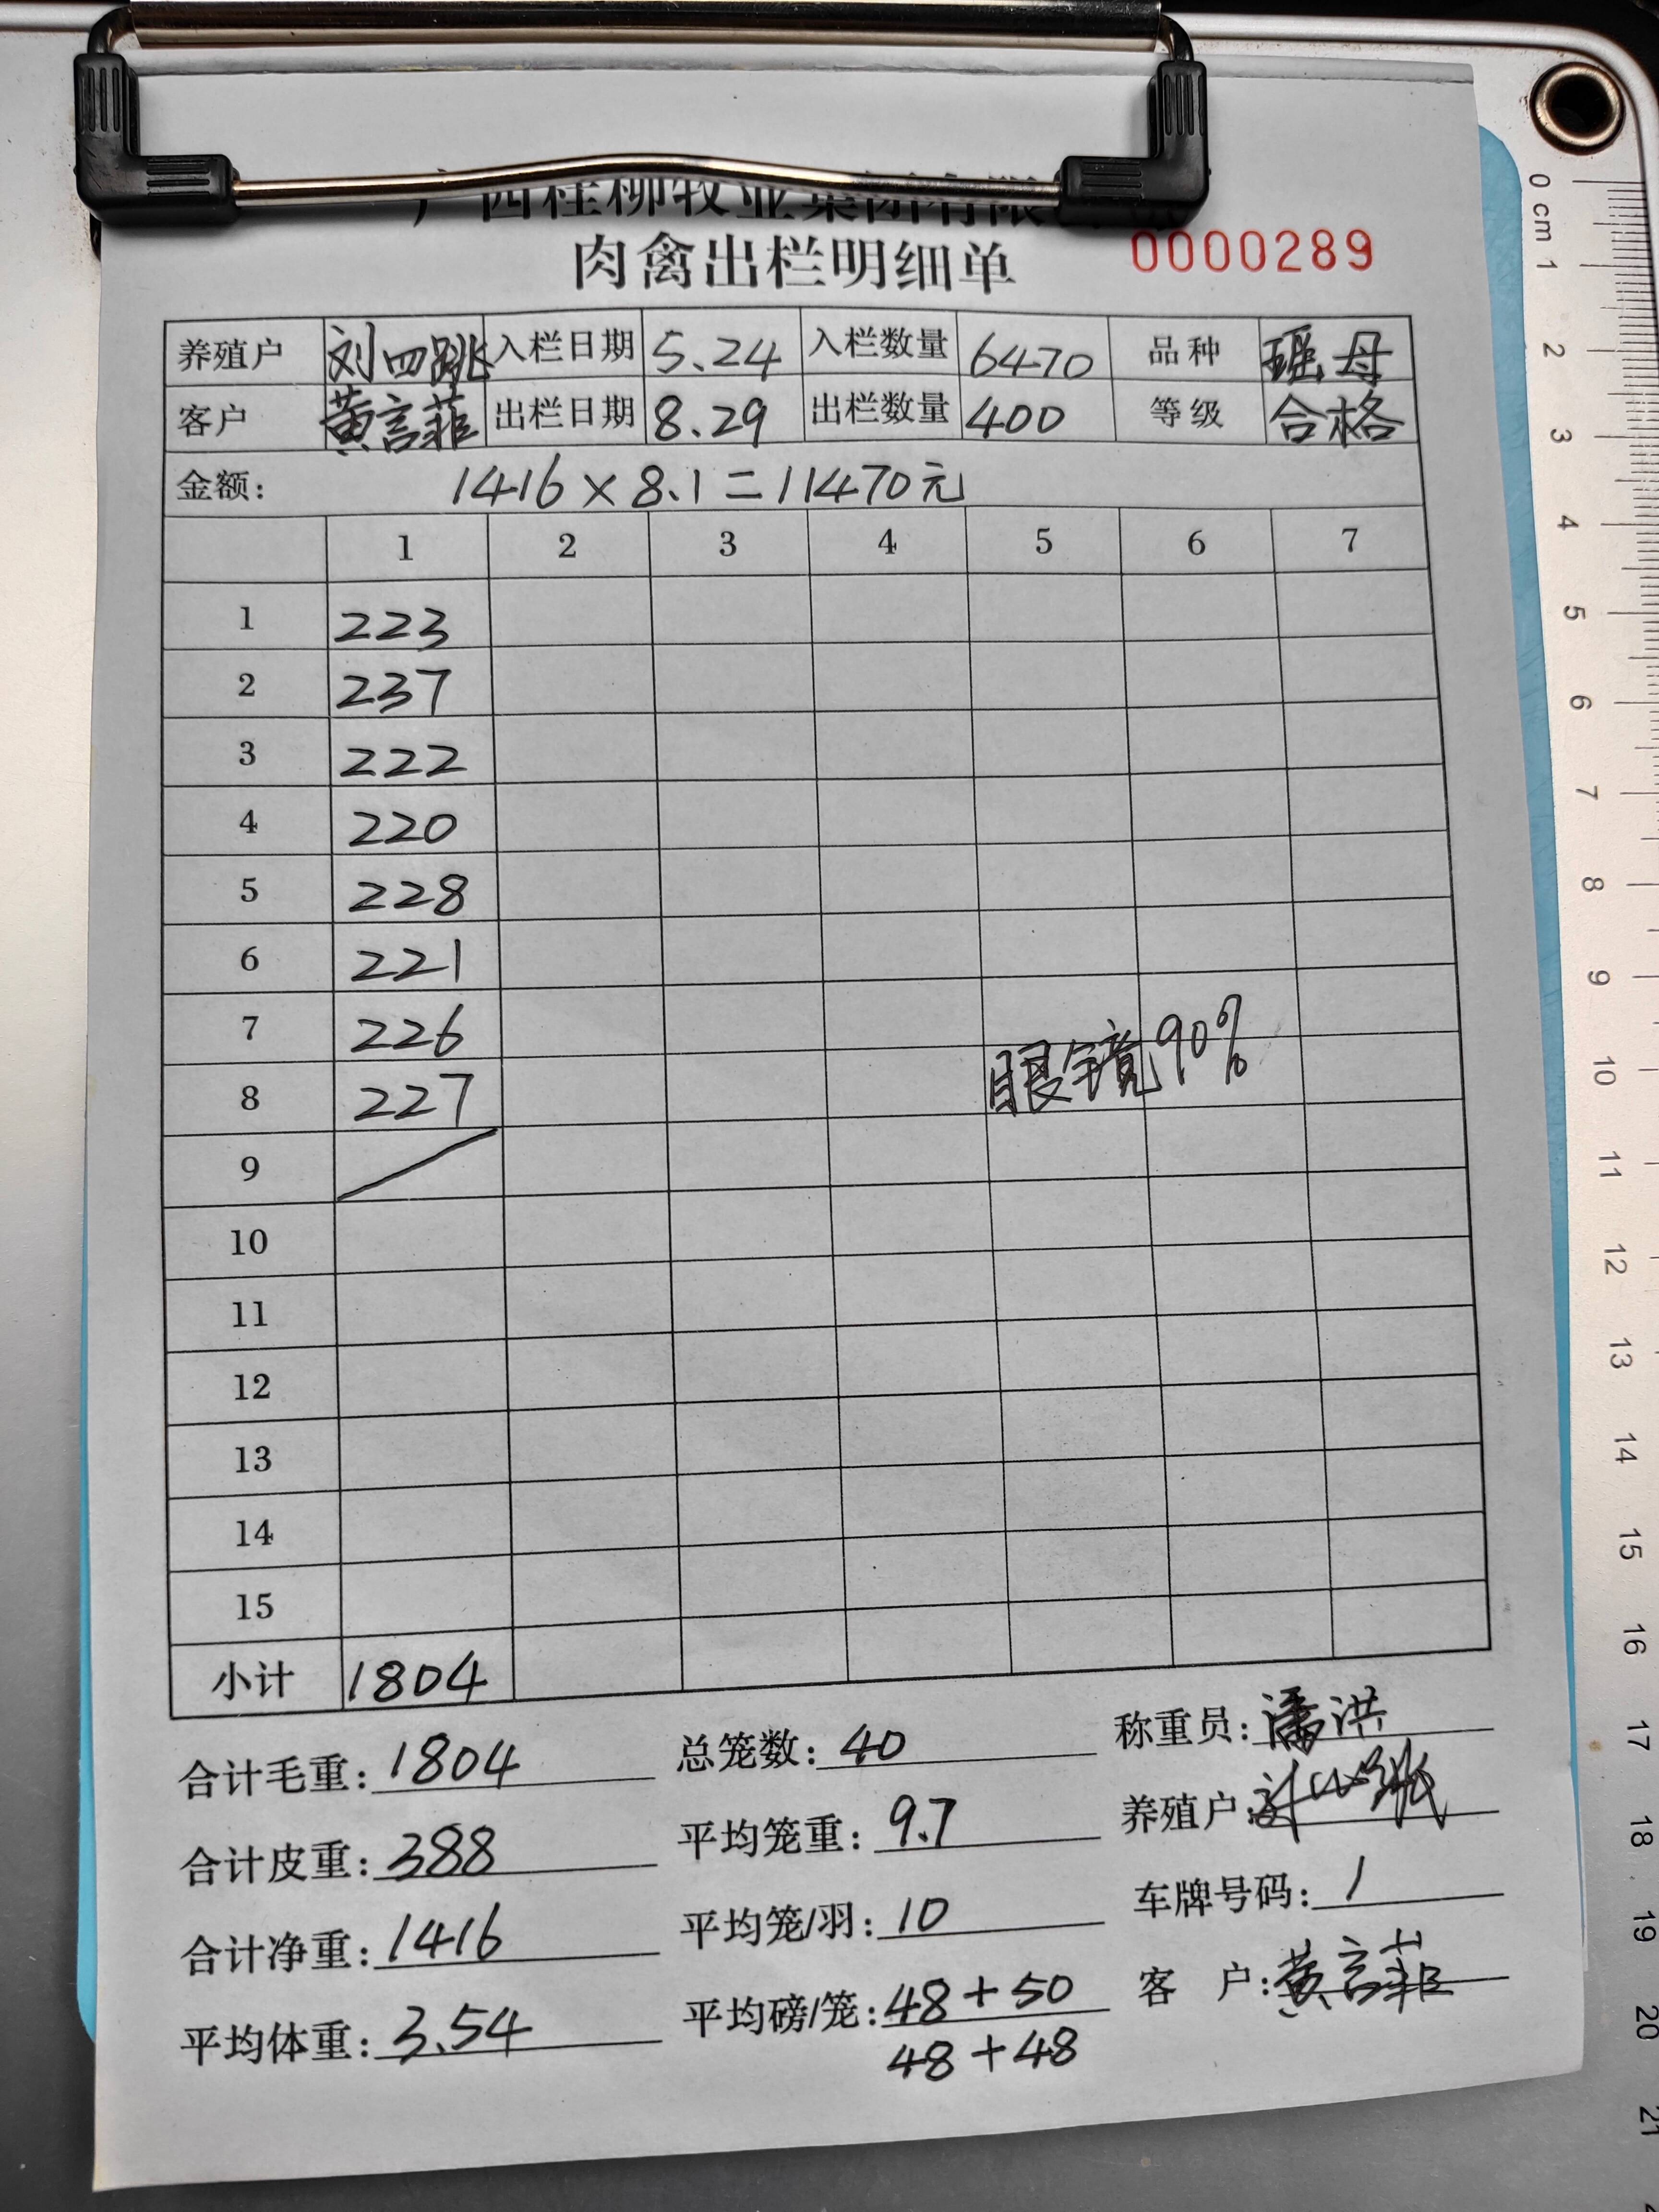 广西桂柳牧业集团有限
肉禽出栏明细单 0000289
养殖户 刘四跳 入栏日期 5.24 入栏数量 6470 品种 瑶母
客户 黄言菲 出栏日期 8.29 出栏数量 400 等级 合格
金额: 1416×8.1=11470元
1 2 3 4 5 6 7
1 223
2 237
3 222
4 220
5 228
6 221
7 226
眼镜90%
8 227
9
10
11
12
13
14
15
小计 1804
合计毛重: 1804 总笼数: 40 称重员: 潘洪
合计皮重: 388 平均笼重: 9.7 养殖户:
合计净重: 1416 平均笼/羽: 10 车牌号码: 1
平均体重: 3.54 平均磅/笼: 48+50 客户: 黄言菲
48+48
0 cm 1 2 3 4 5 6 7 8 9 10 11 12 13 14 15 16 17 18 19 20 21